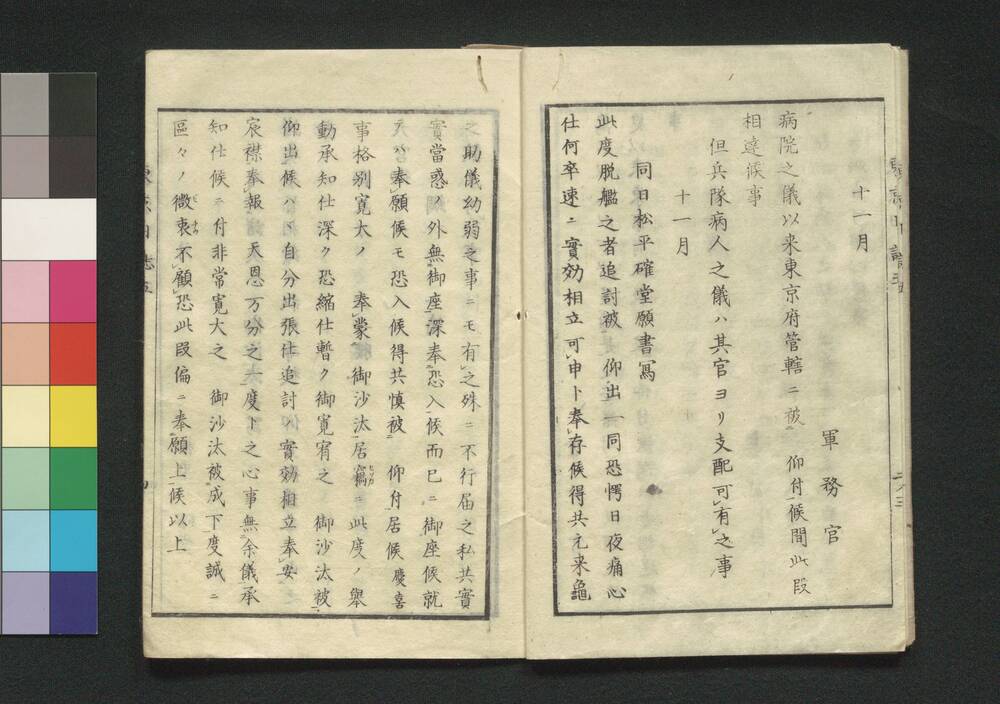 十一月
軍務官
病院之儀以来東京府管轄ニ被 仰付候間此段
相達候事
但兵隊病人之儀ハ其官ヨリ支配可有之事
十一月
同日松平確堂願書寫
此度脱艦之者追討被 仰出一同恐愕日夜痛心
仕何卒速ニ實効相立可申ト奉存候得共元来龜
之助儀幼弱之事ニモ有之殊ニ不行届之私共實
實當惑ノ外無御座深奉恐入候而已ニ御座候就
天ハ奉願候モ恐入候得共慎被 仰付居候慶喜
事格別寛大ノ 奉蒙御沙汰居竊ニ此度ノ舉
動承知仕深ク恐縮仕暫ク御寛宥之 御沙汰被
仰出候ハヽ自分出張仕追討ノ實効相立奉安
宸襟奉報 天恩万分之一度ト之心事無余儀承
知仕候ニ付非常寛大之 御沙汰被成下度誠ニ
區々ノ微衷不顧恐此段偏ニ奉願上候以上